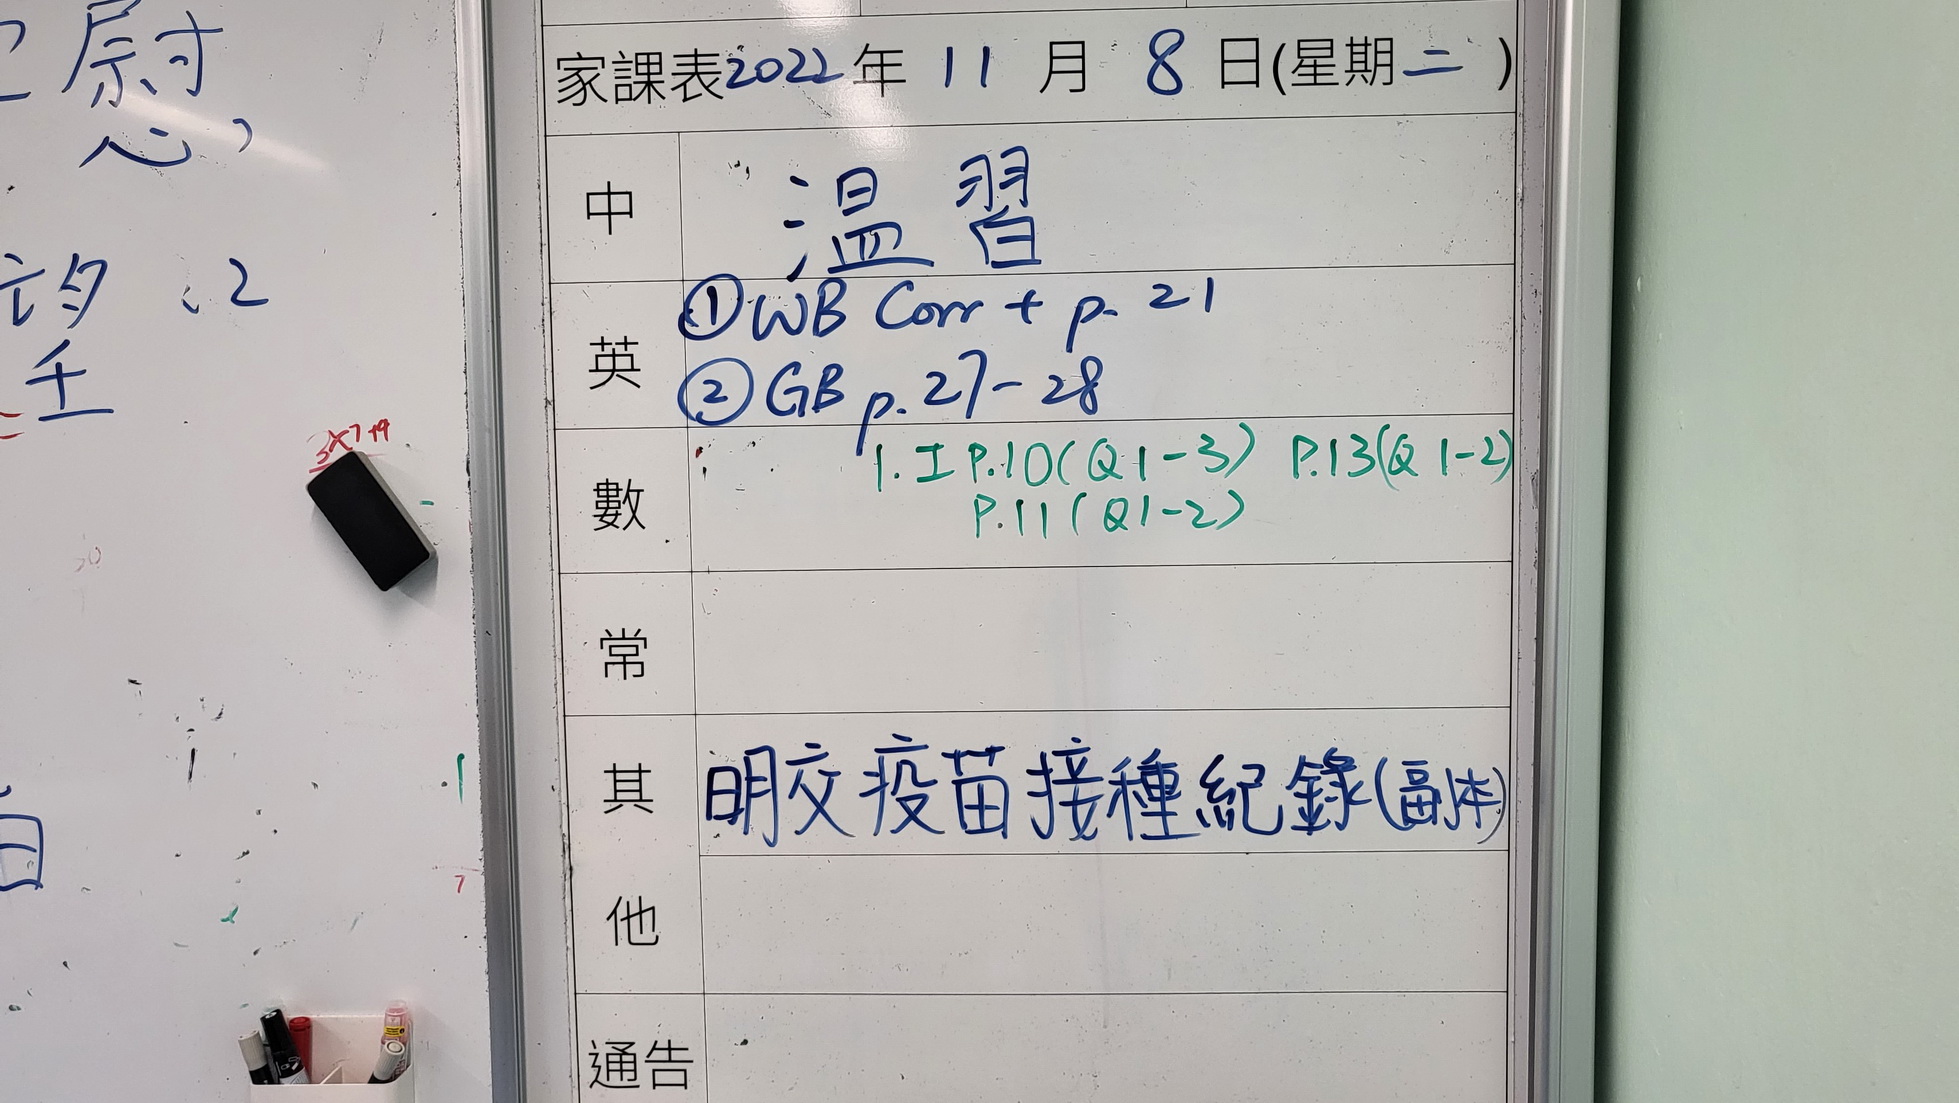 慰
望
2
3×7+9
家課表2022年 11 月 8 日(星期二)
中
溫習
英
①WB Corr + p. 21
②GB p. 27-28
數
1. 工 P.10(Q1-3) P.13(Q1-2)
P.11(Q1-2)
常
其他
明交疫苗接種紀錄(副本)
通告